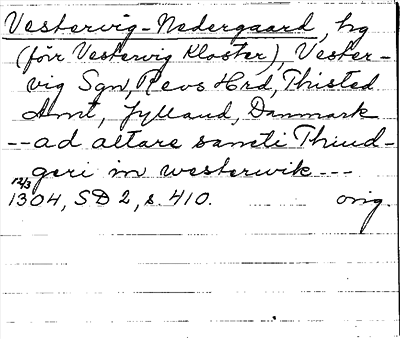 Vestervig-Nedergaard, hg
(förr Vestervig Kloster), Vester-
vig Sgn, Revs Hrd, Thisted
Amt, Jylland, Danmark
--ad altare sancti Thiud-
geri in westerwik---
12/3
1304, SD 2, s. 410. orig.